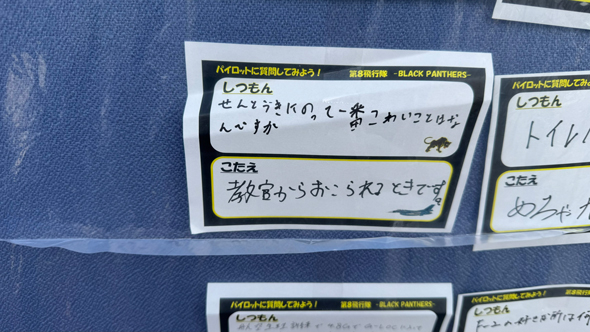 パイロットに質問してみよう！ 第8飛行隊 -BLACK PANTHERS-
しつもん
せんとうきにのって一番こわいことはな
んですか
こたえ
教官からおこられるときです。
パイロットに質問してみよう
しつもん
トイレ
こたえ
めちゃ
パイロットに質問してみよう！ 第8飛行隊 -BLACK PANTHERS-
しつもん
パイロットに質問してみよう！
しつもん